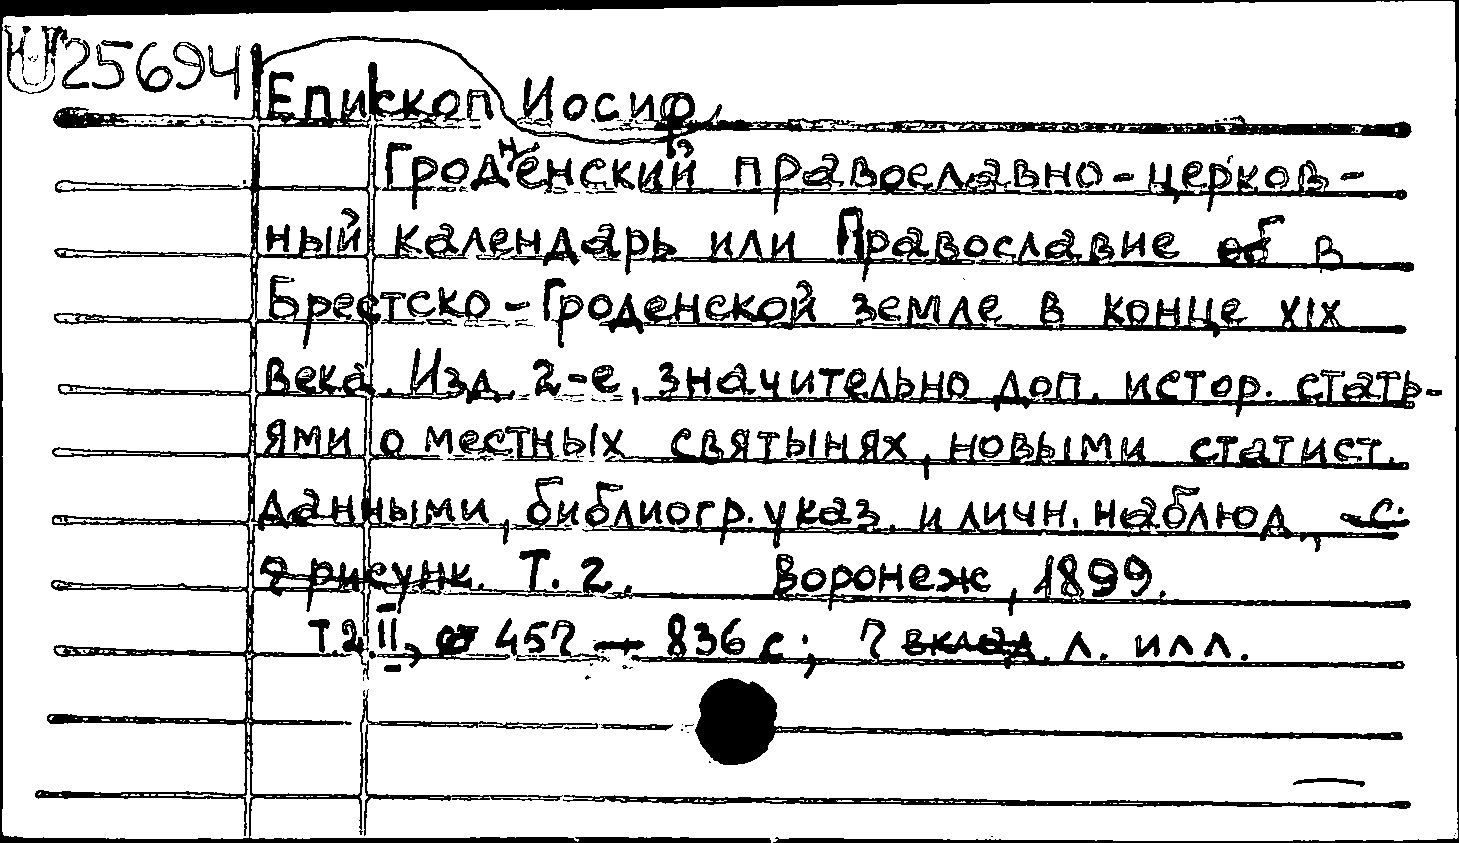 25694
Епископ Иосиф
Гродненский православно-церков-
ный календарь или Православие в
Брестско-Гроденской земле в конце XIX
века. Изд. 2-е, значительно доп. истор. стать-
ями о местных святынях, новыми статист.
данными, библиогр. указ. и личн. наблюд.,
Т. 2. Воронеж, 1899.
Т.2. II, 457 — 836 с.; 7 л. илл.